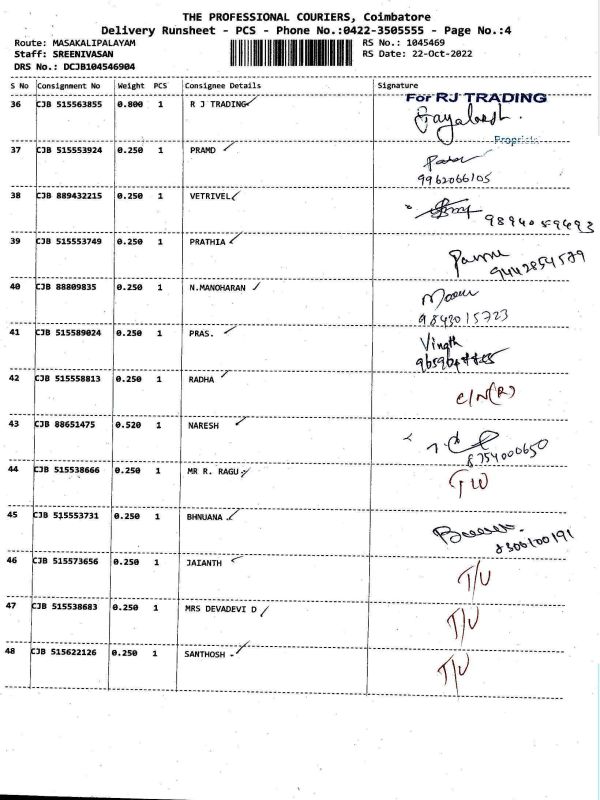 THE PROFESSIONAL COURIERS, Coimbatore
Delivery Runsheet - PCS - Phone No.:0422-3505555 - Page No.:4
Route: MASAKALIPALAYAM RS No.: 1045469
Staff: SREENIVASAN RS Date: 22-Oct-2022
DRS No.: DCJB104546904
S No Consignment No Weight PCS Consignee Details Signature
For RJ TRADING
36 CJB 515563855 0.800 1 R J TRADING
37 CJB 515553924 0.250 1 PRAMD
9962066105
38 CJB 889432215 0.250 1 VETRIVEL
9894059693
39 CJB 515553749 0.250 1 PRATHIA
9442854579
40 CJB 88809835 0.250 1 N.MANOHARAN
9843015723
41 CJB 515589024 0.250 1 PRAS.
42 CJB 515558813 0.250 1 RADHA C/N(R)
43 CJB 88651475 0.520 1 NARESH
8754000650
44 CJB 515538666 0.250 1 MR R. RAGU
45 CJB 515553731 0.250 1 BHNUANA
46 CJB 515573656 0.250 1 JAIANTH T/U
47 CJB 515538683 0.250 1 MRS DEVADEVI D T/U
48 CJB 515622126 0.250 1 SANTHOSH - T/U